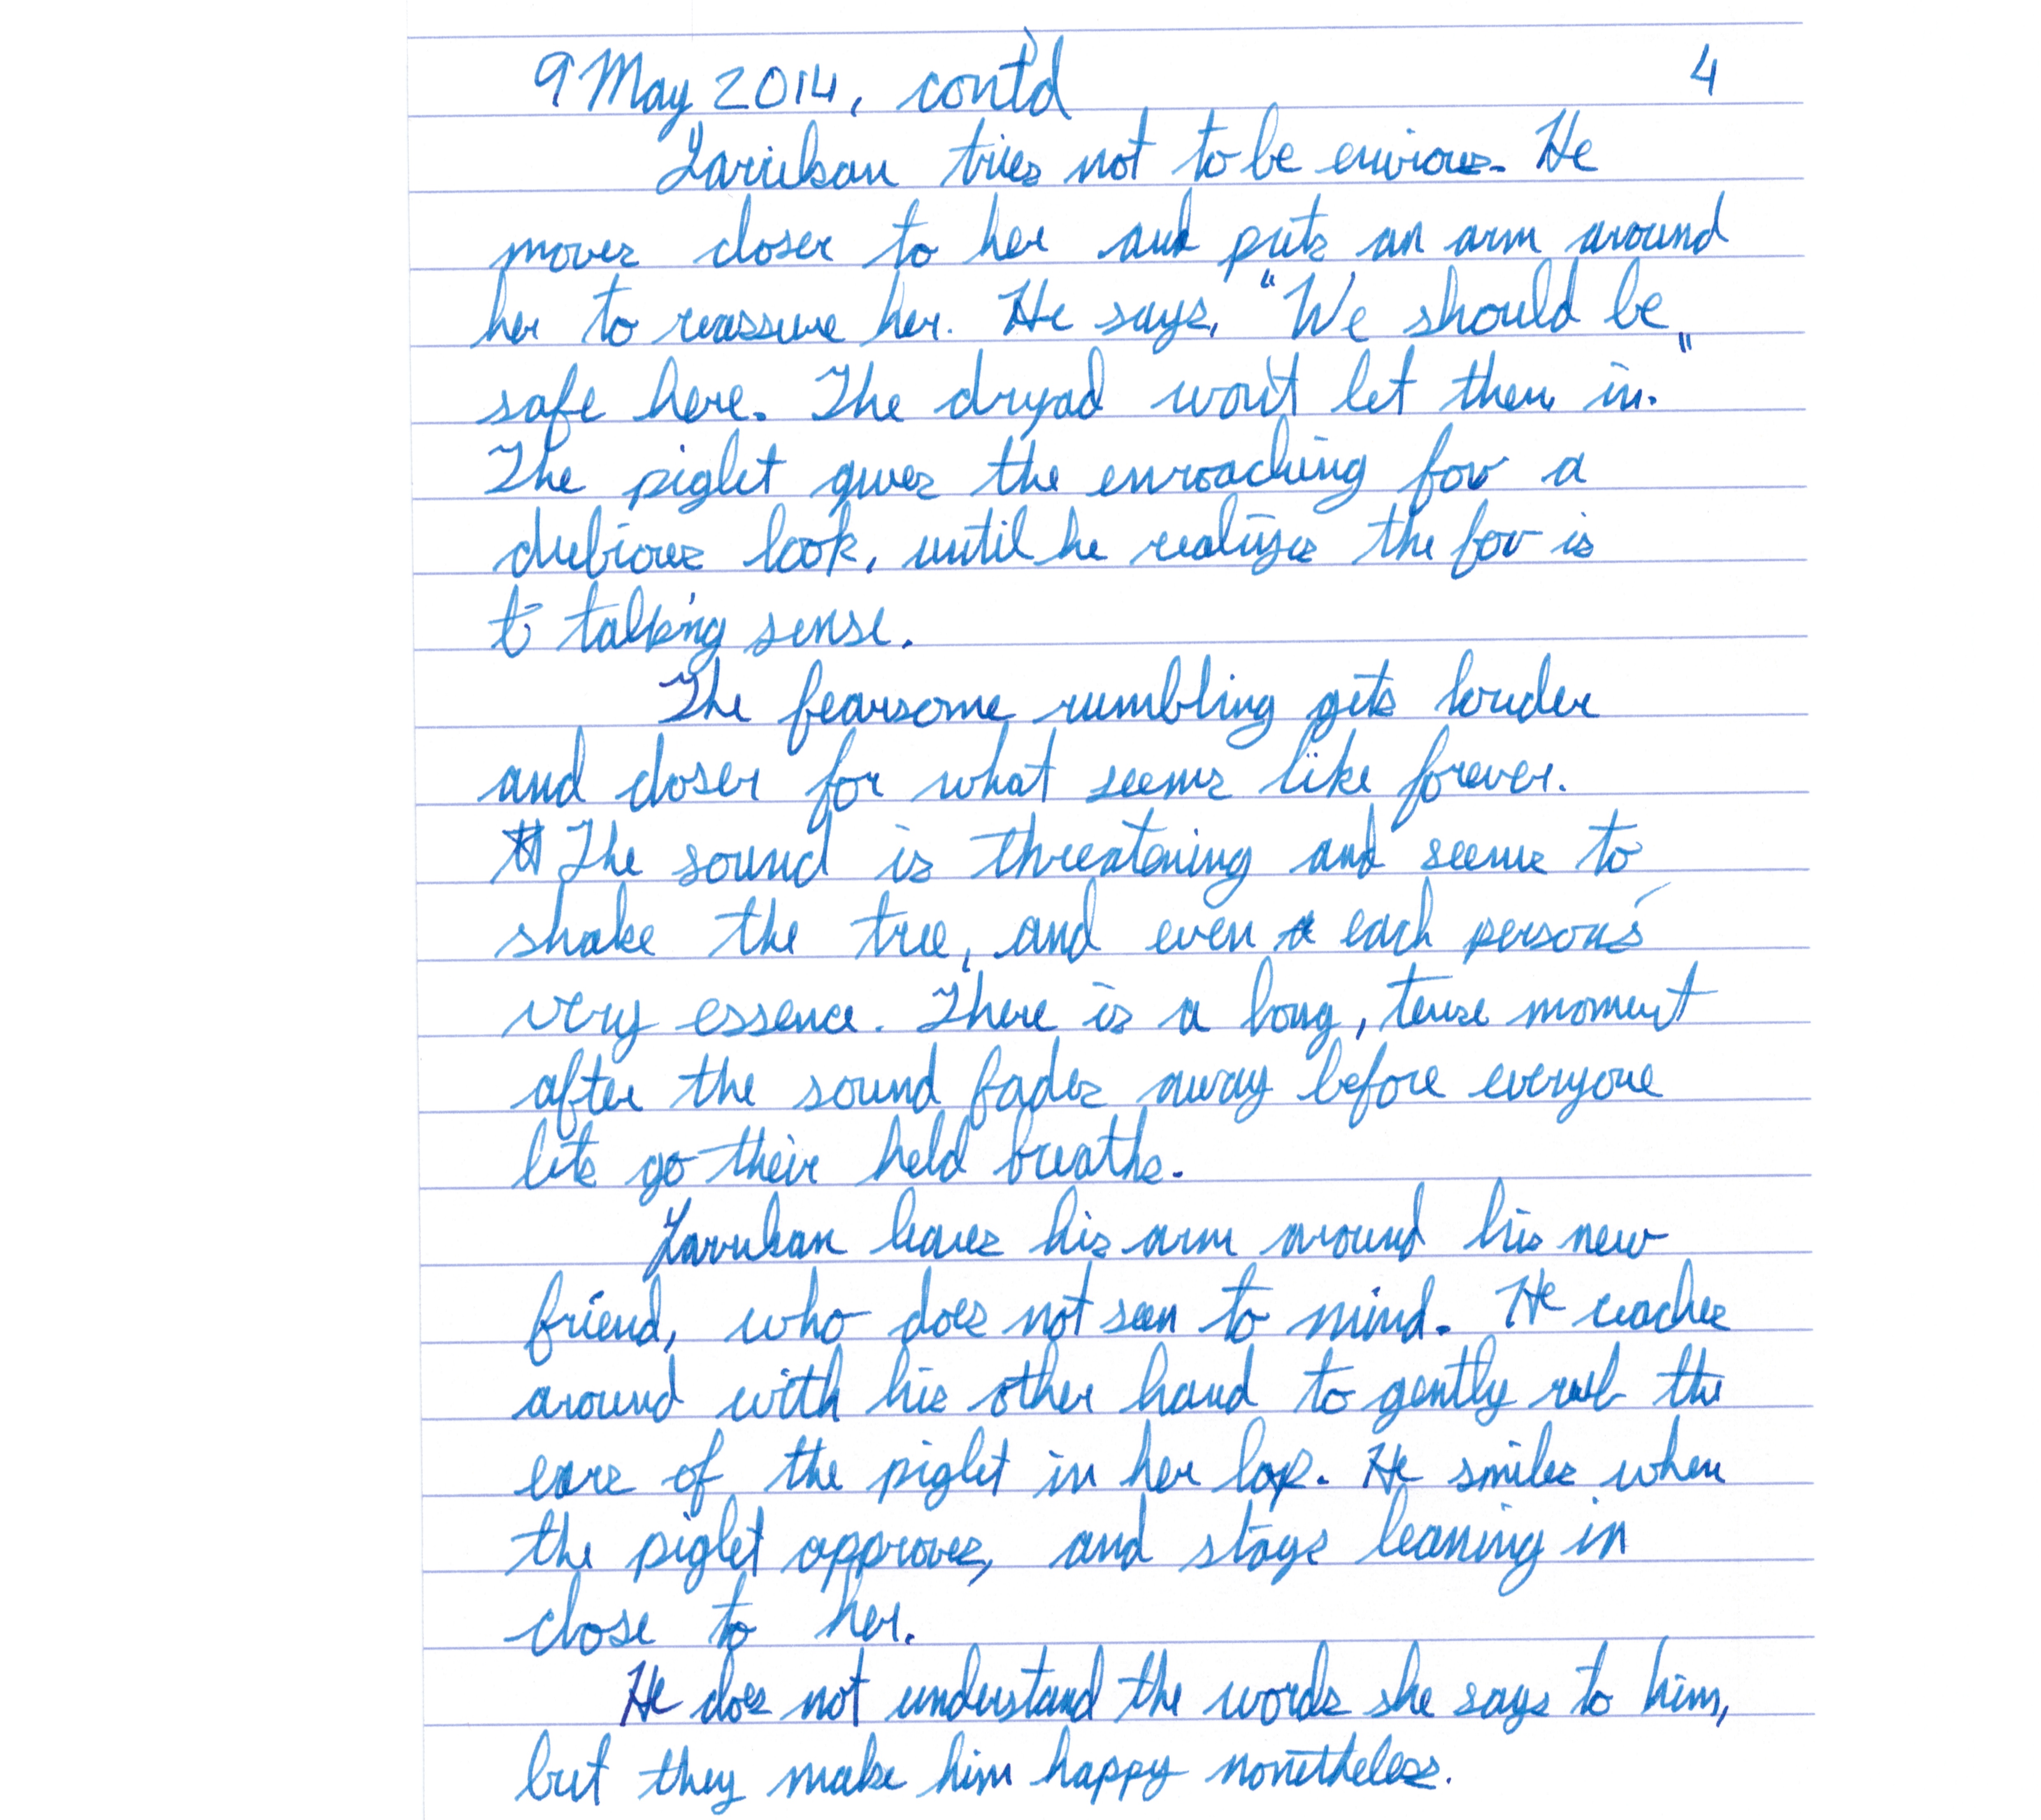 9 May 2014, cont'd 4
Larukan tries not to be envious. He
moves closer to her and puts an arm around
her to reassure her. He says, "We should be
safe here. The dryad won't let them in."
The piglet gives the enroaching fox a
dubious look, until he realizes the fox is
t talking sense.
The fearsome rumbling gets louder
and closer for what seems like forever.
The sound is threatening and seems to
shake the tree, and even each person's
very essence. There is a long, tense moment
after the sound fades away before everyone
lets go their held breaths.
Larukan leaves his arm around his new
friend, who does not seem to mind. He reaches
around with his other hand to gently rub the
ears of the piglet in her lap. He smiles when
the piglet approves, and stays leaning in
close to her.
He does not understand the words she says to him,
but they make him happy nonetheless.